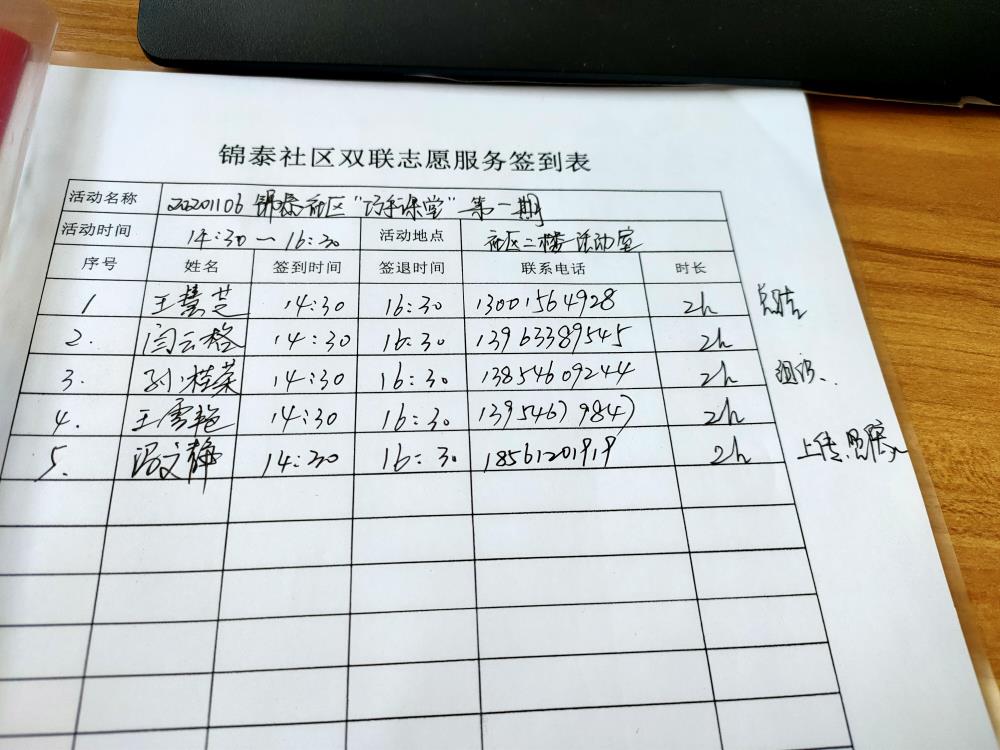 锦泰社区双联志愿服务签到表
活动名称 20201106 锦泰社区"巧手课堂"第一期
活动时间 14:30—16:30 活动地点 社区二楼活动室
序号 姓名 签到时间 签退时间 联系电话 时长
1 王慧芝 14:30 16:30 13001564928 2h 总结
2. 闫云格 14:30 16:30 13963389545 2h
3. 孙桂荣 14:30 16:30 13854609244 2h
4. 王雪艳 14:30 16:30 13954679847 2h
5. 冯文静 14:30 16:30 18561201919 2h 上传